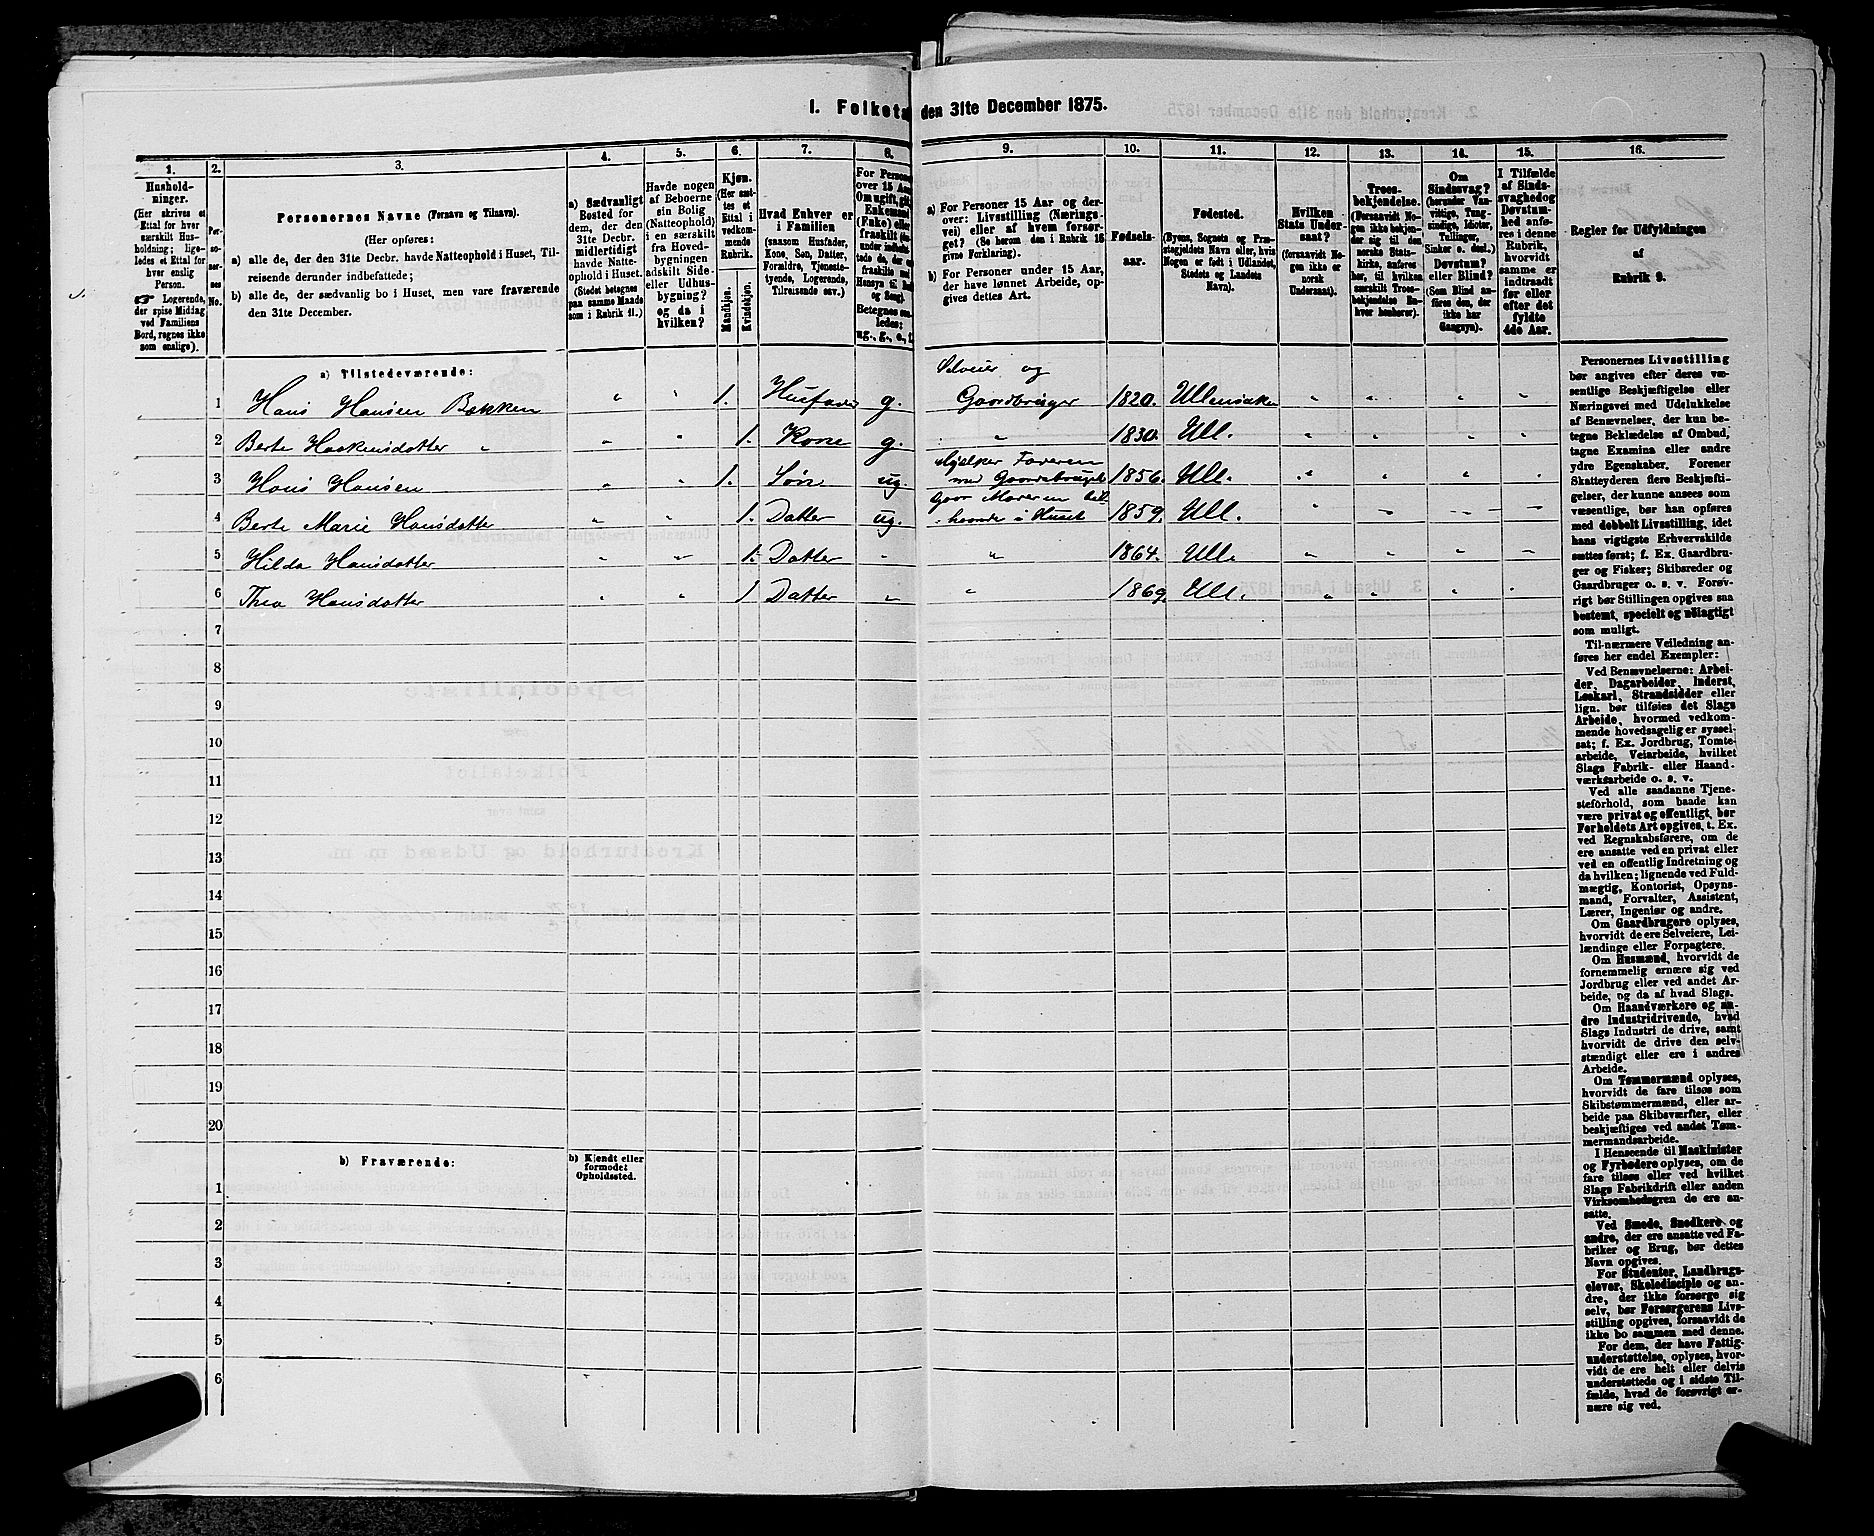 1. Folketal den 31te December 1875.
1. 2. 3. 4. 5. 6. 7. 8. 9. 10. 11. 12. 13. 14. 15. 16.
Hushold-
ninger.
(Her skrives et
Ettal for hver
særskilt Hus-
holdning; lige-
ledes et Ettal for
hver enslig
Person.
Logerende,
der spise Middag
ved Familiens
Bord, regnes ikke
som enslige).
Per-
soner-
nes
No.
Personernes Navne (Fornavn og Tilnavn).
(Her opføres:
a) alle de, der den 31te Decbr. havde Natteophold i Huset, Til-
reisende derunder indbefattede;
b) alle de, der sædvanlig bo i Huset, men vare fraværende
den 31te December.
a) Sædvanligt
Bosted for
dem, der den
31te Decbr.
midlertidigt
havde Natte-
ophold i Huset.
(Stedet betegnes
paa samme Maade
som i Rubrik 11.)
Havde nogen
af Beboerne
sin Bolig
(Natteophold)
i en særskilt
fra Hoved-
bygningen
adskilt Side-
eller Udhus-
bygning?
og da i
hvilken?
Kjøn.
(Her sæt-
tes et
Ettal i
vedkom-
mende
Rubrik.
Mandkjøn.
Kvindekjøn.
Hvad Enhver er
i Familien
(saasom Husfader,
Kone, Søn, Datter,
Forældre, Tjeneste-
tyende, Logerende,
Tilreisende osv.)
For Personer
over 15 Aar:
Om ugift, gift,
Enkemand
(Enke) eller
fraskilt
Betegnes saa-
ledes:
ug., g., e., f.
a) For Personer 15 Aar og der-
over: Livsstilling (Nærings-
vei) eller af hvem forsør-
get? (Se herom den i Rubrik 16
givne Forklaring).
b) For Personer under 15 Aar,
der have lønnet Arbeide, op-
gives dettes Art.
Fødsels-
aar.
Fødested.
(Byens, Sognets og Præ-
stegjeldets Navn eller, hvis
Nogen er født i Udlandet,
Stedets og Landets
Navn).
Hvilken
Stats Under-
saat?
(forsaavidt No-
gen ikke er
norsk
Undersaat).
Troes-
bekjendelse.
(Forsaavidt No-
gen ikke bekjen-
der sig til den
norske Stats-
kirke, anføres
her, til hvilken
særskilt Troes-
bekjendelse En-
hver henhører).
Om
Sindssvag?
(herunder Van-
vittige, Tung-
sindige, Idioter,
Tullinger,
Sinker o. desl.)
Døvstum?
eller Blind?
(Som Blind an-
føres den, der
ikke har
Gangsyn).
I Tilfælde
af Sinds-
svaghed og
Døvstum-
hed anfø-
res i denne
Rubrik,
hvorvidt
samme er
indtraadt
før eller
efter det
fyldte
4de Aar.
Regler for Udfyldningen
af
Rubrik 9.
a) Tilstedeværende:
1 Hans Hansen Bakken " " 1. Husfader g. Selveier og Gaardbruger 1820. Ullensaker " " " "
2 Berte Haakensdatter " " " 1. Kone g. " 1830. Ull. " " " "
3 Hans Hansen " " 1. Søn ug. Hjelper Faderen med Gaardsbruget 1856. Ull. " " " "
4 Berte Marie Hansdatter " " 1. Datter ug. Gaar Moderen til haande i Huset 1859. Ull. " " " "
5 Hilda Hansdatter " " 1. Datter " " 1864. Ull. " " " "
6 Thea Hansdatter " " 1 Datter " " 1869. Ull. " " " "
7
8
9
10
11
12
13
14
15
16
17
18
19
20
b) Fraværende:
b) Kjendt eller
formodet
Opholdssted.
1
2
3
4
5
6
Personernes Livsstilling
bør angives efter deres væ-
sentlige Beskjæftigelse eller
Næringsvei med Udelukkelse
af Benævnelser, der kun be-
tegne Beklædelse af Ombud,
tagne Examina eller andre
ydre Egenskaber. Forener
Skatteyderen flere Beskjæfti-
gelser, der kunne ansees som
væsentlige, bør han opføres
med dobbelt Livsstilling, idet
hans vigtigste Erhvervskilde
sættes først; f. Ex. Gaardbru-
ger og Fisker; Skibsreder og
Gaardbruger o. s. v. Forøv-
rigt bør Stillingen opgives saa
bestemt, specielt og nøiagtigt
som muligt.
Til nærmere Veiledning an-
føres her endel Exempler:
Ved Benævnelserne: Arbei-
der, Dagarbeider, Inderst,
Løskarl, Strandsidder eller
lign. bør tilføies det Slags
Arbeide, hvormed vedkom-
mende hovedsagelig er syssel-
sat; f. Ex. Jordbrug, Tomte-
arbeide, Veiarbeide, hvilket
Slags Fabrik- eller Haand-
værksarbeide o. s. v.
Ved alle saadanne Tjene-
steforhold, som baade kan
være privat og offentligt, bør
Forholdets Art opgives, t. Ex.
ved Regnskabsførere, om de
ere ansatte ved en privat eller
ved en offentlig Indretning og
da hvilken; lignende ved Fuld-
mægtig, Kontorist, Opsyns-
mand, Forvalter, Assistent,
Lærer, Ingeniør og andre.
Om Gaardbrugere oplyses,
hvorvidt de ere Selveiere, Lei-
lændinge eller Forpagtere.
Om Husmænd, hvorvidt de
fornemmelig ernære sig ved
Jordbrug eller ved andet Ar-
beide, og da af hvad Slags.
Om Haandværkere og an-
dre Industridrivende, hvad
Slags Industri de drive, samt
hvorvidt de drive den selv-
stændigt eller ere i andres
Arbeide.
Om Tømmermænd oplyses,
hvorvidt de fare tilsøs som
Skibstømmermænd, eller ar-
beide paa Skibsværfter, eller
beskjæftiges ved andet Tøm-
mermandsarbeide.
I Henseende til Maskinister
og Fyrbødere oplyses, om de
fare tilsøs eller ved hvilket
Slags Fabrikdrift eller anden
Virksomhedsgren de ere an-
satte.
Ved Smede, Snedkere og
andre, der ere ansatte ved Fa-
briker og Brug, bør dettes
Navn opgives.
For Studenter, Landbrugs-
elever, Skoledisciple og an-
dre, der ikke forsørge sig
selv, bør Forsørgerens Livs-
stilling opgives, forsaavidt de
ikke bo sammen med denne.
For dem, der have Fattig-
understøttelse, oplyses, hvor-
vidt de ere helt eller delvis
understøttede og i sidste Til-
fælde, hvad de forøvrigt er-
nære sig ved.